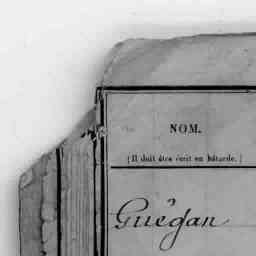 NOM.
(Il doit être écrit en bâtarde.)
Guégan